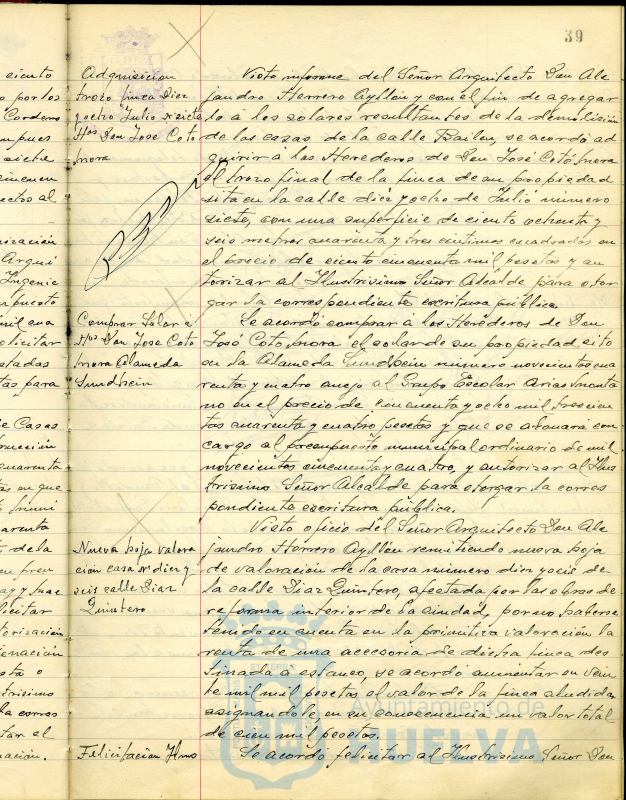 39
ciento
por los
Cordero
siete
al
Arqui
Ingenie
mil
solicitar
para
de Casas
cuarenta
en que
de la
en
y
solicitar
autorización
o
la corres
tar el
nación.
Adquisición
trozo finca Diez
y ocho Julio nº siete
Hºs Don José Coto
Mora
Comprar Solar á
Hºs Don José Coto
Mora Alameda
Sundheim
Nueva hoja valora
ción casa nº diez y
seis calle Diaz
Quintero
Felicitación Ilmo
Visto informe del Señor Arquitecto Don Ale
jandro Herrero Ayllón y con el fin de agregar
lo á los solares resultantes de la demolición
de las casas de la calle Bailen, se acordó ad
quirir á los Herederos de Don José Coto Mora
el trozo final de la finca de su propiedad
sita en la calle diez y ocho de Julio número
siete, con una superficie de ciento ochenta y
seis metros cuarenta y tres centimos cuadrados en
el precio de ciento cincuenta mil pesetas y au
torizar al Ilustrisimo Señor Alcalde para otor
gar la correspondiente escritura pública.
Se acordó comprar á los Herederos de Don
José Coto Mora el solar de su propiedad, sito
en la Alameda Sundheim número novecientos cua
renta y cuatro anejo al Grupo Escolar Arias Monta
no en el precio de cincuenta y ocho mil trescien
tas cuarenta y cuatro pesetas y que se abonará con
cargo al presupuesto municipal ordinario de mil
novecientos cincuenta y cuatro, y autorizar al Ilus
trisimo Señor Alcalde para otorgar la corres
pondiente escritura pública.
Visto oficio del Señor Arquitecto Don Ale
jandro Herrero Ayllón remitiendo nueva hoja
de valoración de la casa número diez y seis de
la calle Diaz Quintero, afectada por las obras de
reforma interior de la ciudad, por no haberse
tenido en cuenta en la primitiva valoración la
renta de una accesoria de dicha finca des
tinada á estanco, se acordó aumentar en vein
te mil mil pesetas el valor de la finca aludida
asignandole, en su consecuencia un valor total
de cien mil pesetas.
Se acordó felicitar al Ilustrisimo Señor Don
Ayuntamiento de
HUELVA